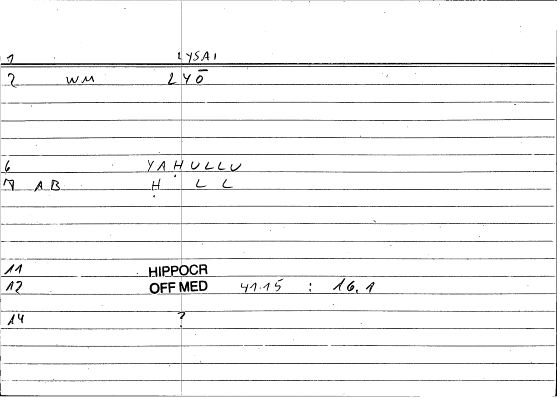 1 LYSAI
2 WM LYŌ
6 YAḤULLU
7 AB Ḥ L L
11 HIPPOCR
12 OFF MED 41.15 : 16.1
14 ?